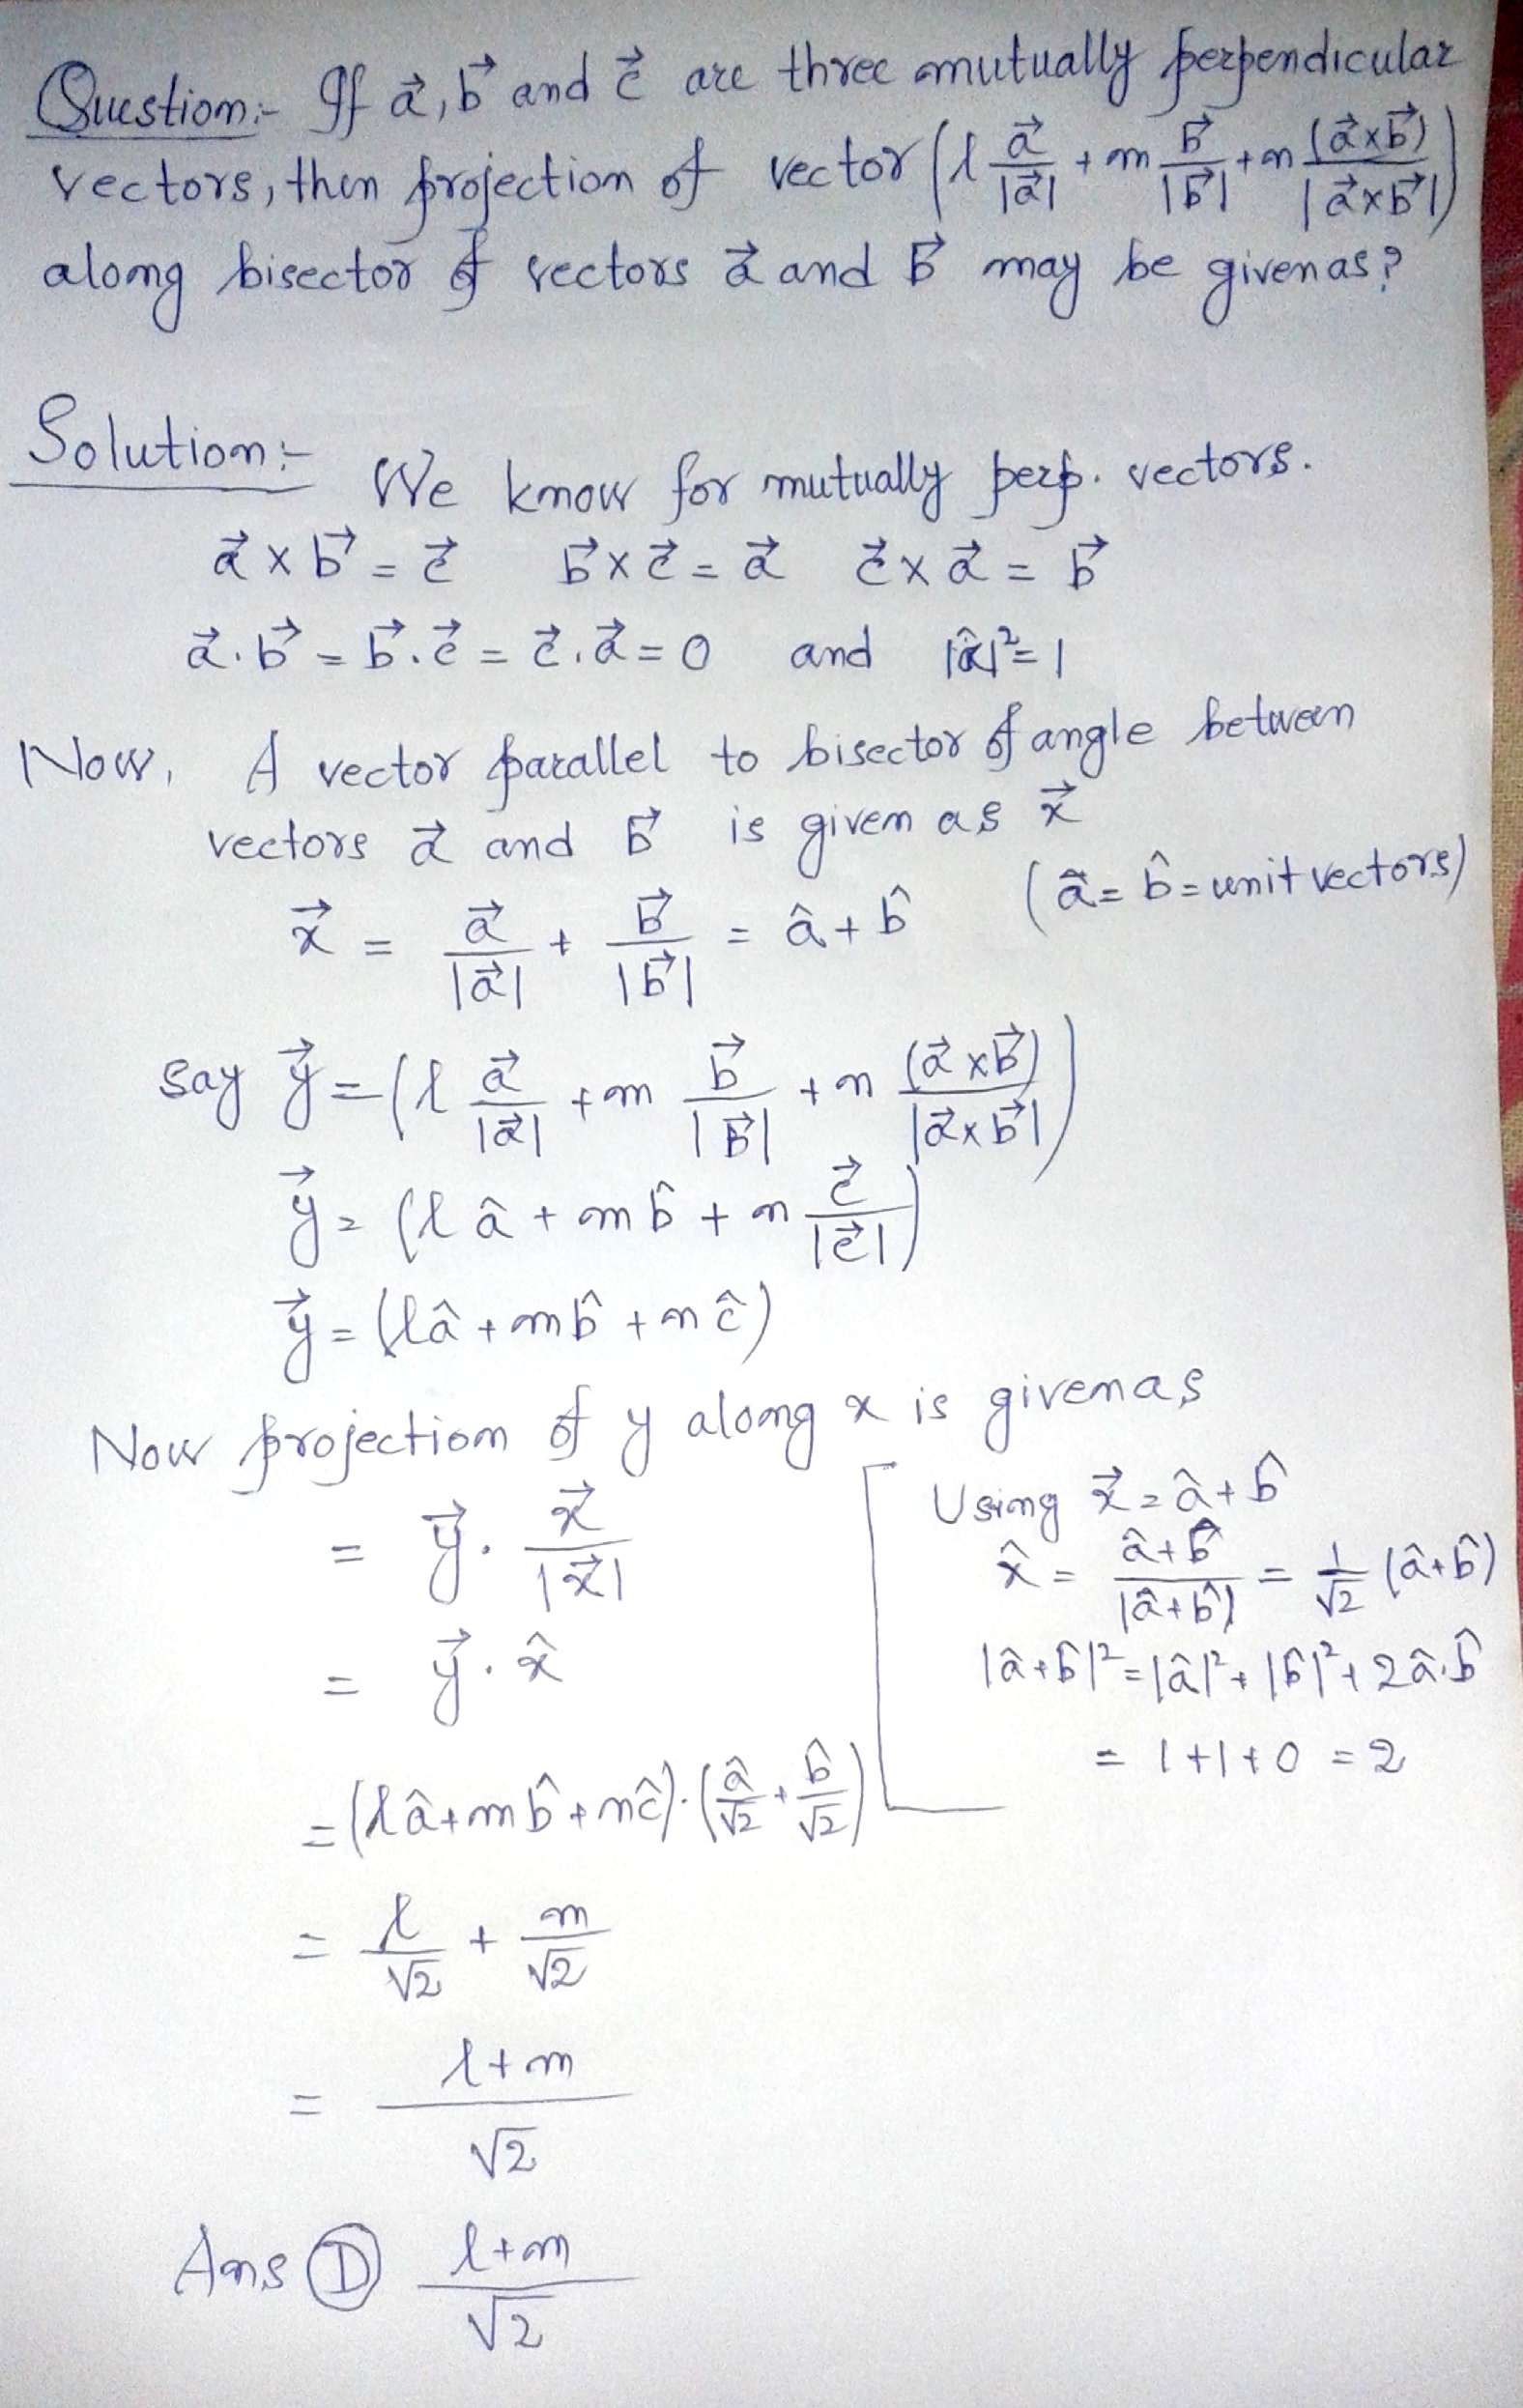 Question:- If a⃗, b⃗ and c⃗ are three mutually perpendicular
vectors, then projection of vector (l a⃗/|a⃗| + m b⃗/|b⃗| + n (a⃗×b⃗)/|a⃗×b⃗|)
along bisector of vectors a⃗ and b⃗ may be given as?
Solution:-
We know for mutually perp. vectors.
a⃗ × b⃗ = c⃗  b⃗ × c⃗ = a⃗  c⃗ × a⃗ = b⃗
a⃗.b⃗ = b⃗.c⃗ = c⃗.a⃗ = 0 and |â|² = 1
Now, A vector parallel to bisector of angle between
vectors a⃗ and b⃗ is given as x⃗
x⃗ = a⃗/|a⃗| + b⃗/|b⃗| = â + b̂ (ã = b̂ = unit vectors)
say y⃗ = (l a⃗/|a⃗| + m b⃗/|b⃗| + n (a⃗×b⃗)/|a⃗×b⃗|)
y⃗ = (l â + m b̂ + n c⃗/|c⃗|)
y⃗ = (lâ + mb̂ + nĉ)
Now projection of y along x is given as
= y⃗ . x⃗/|x⃗|
= y⃗ . x̂
= (lâ + mb̂ + nĉ).(â/√2 + b̂/√2)
= l/√2 + m/√2
= (l+m)/√2
Using x⃗ = â + b̂
x̂ = (â + b̂)/|â + b̂| = 1/√2 (â + b̂)
|â + b̂|² = |â|² + |b̂|² + 2â.b̂
= 1 + 1 + 0 = 2
Ans Ⓓ (l+m)/√2